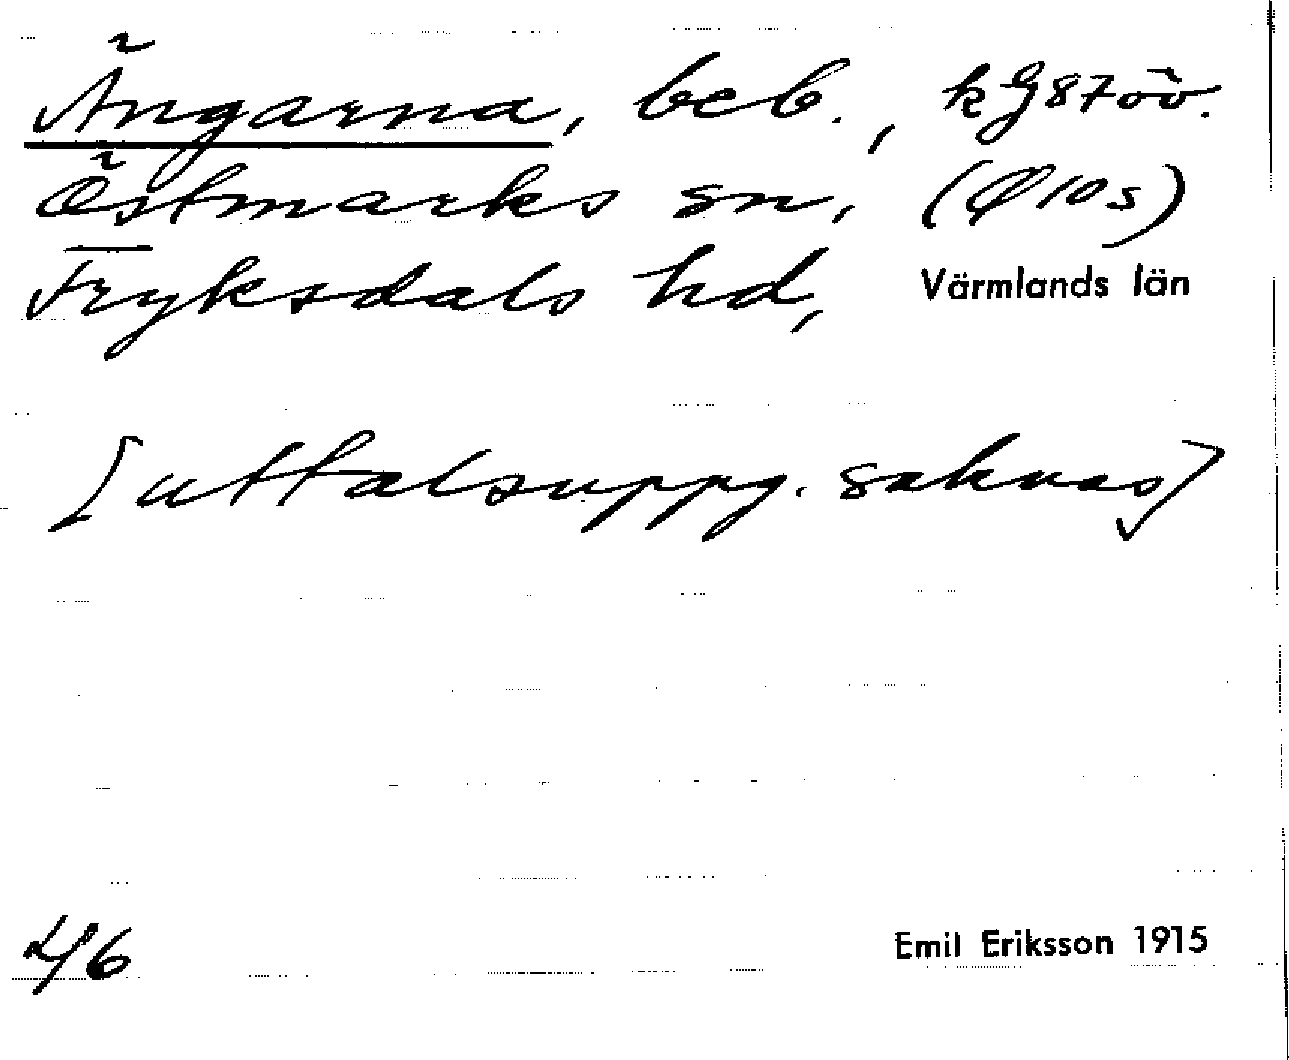 Ängarna, beb., kG87öv.
Östmarks sn, (Ø10s)
Fryksdals hd, Värmlands län
[uttalsuppg. saknas]
46
Emil Eriksson 1915